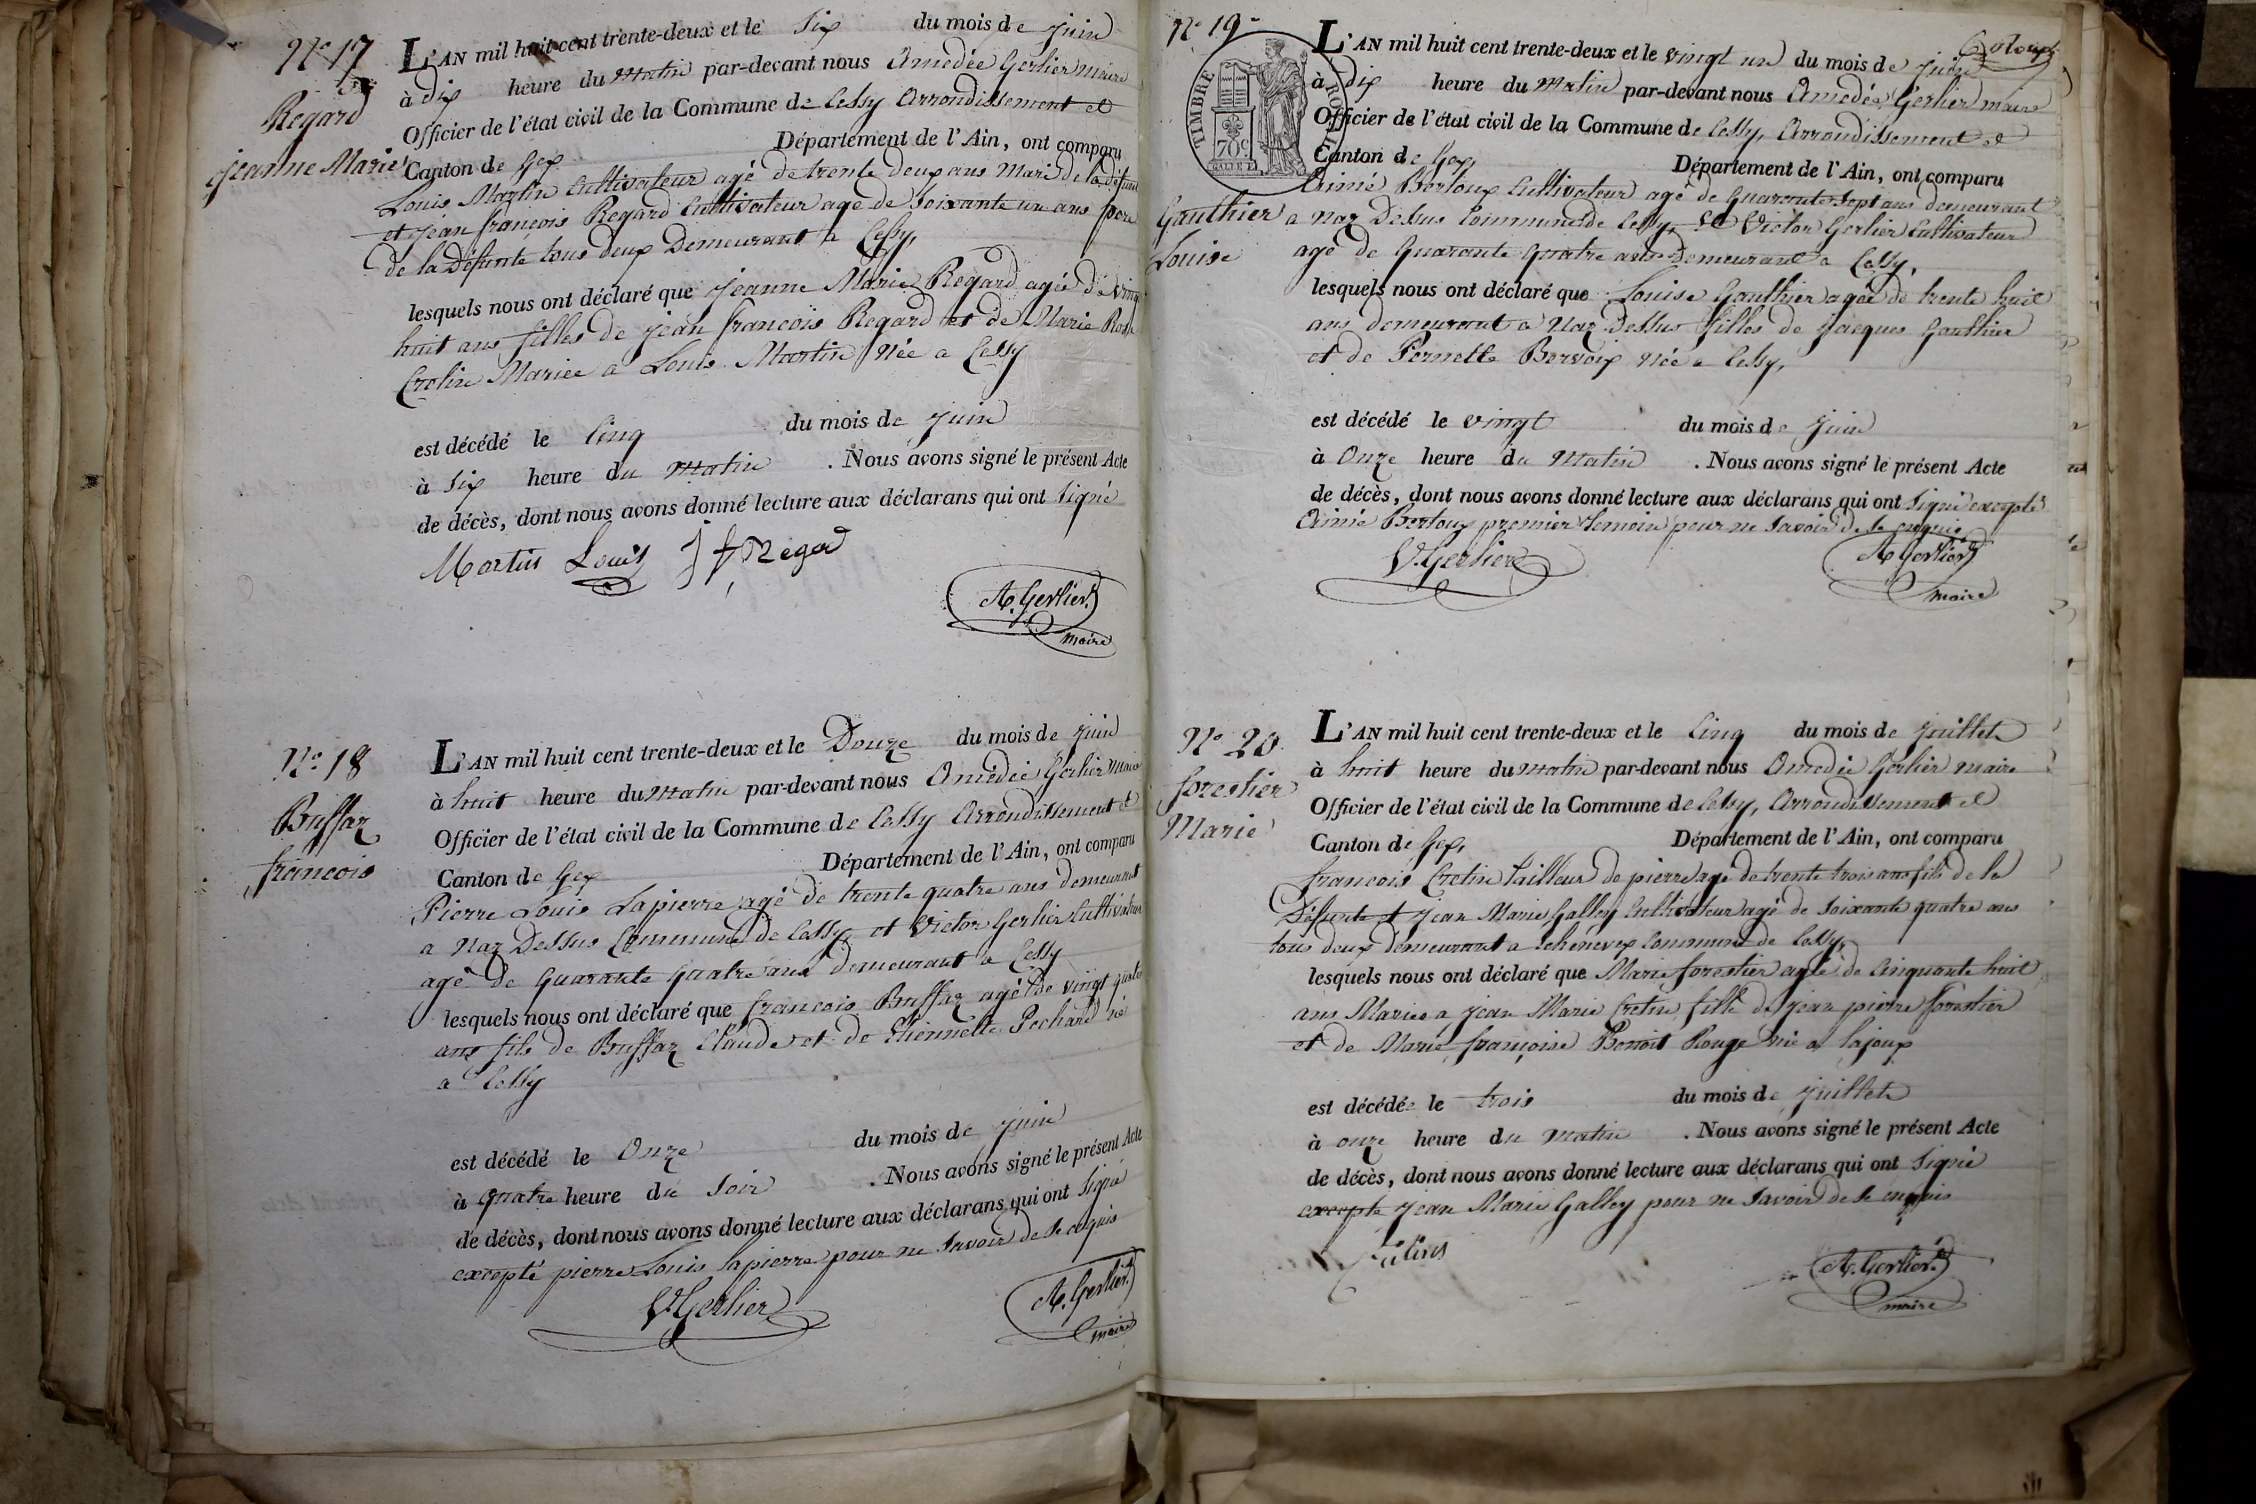 N.o 17
Regard
Jeanne Marie
L'AN mil huit cent trente-deux et le Six du mois de Juin
à Dix heure du Matin par-devant nous Amedée Gerlier maire
Officier de l'état civil de la Commune de Cessy Arrondissement et
Canton de Gex Département de l'Ain, ont comparu
Louis Martin Cultivateur agé de trente deux ans Mari de la défunte
et jean françois Regard Cultivateur agé de Soixante un ans père
de la Défunte tous deux Demeurant a Cessy,
lesquels nous ont déclaré que Jeanne Marie Regard agée de vingt
huit ans filles de jean francois Regard et de Marie
Crotin Mariée a Louis Martin Née a Cessy
est décédé le Cinq du mois de Juin
à Six heure du Matin . Nous avons signé le présent Acte
de décès, dont nous avons donné lecture aux déclarans qui ont Signé
Martin Louis J f Regard
A. Gerlier
maire
N.o 18
Buffaz
françois
L'AN mil huit cent trente-deux et le Douze du mois de Juin
à huit heure du Matin par-devant nous Amédée Gerlier Maire
Officier de l'état civil de la Commune de Cessy Arrondissement et
Canton de Gex Département de l'Ain, ont comparu
Pierre Louis Lapierre agé de trente quatre ans demeurant
a Naz Dessus Commune de Cessy, et Victor Gerlier Cultivateur
agé de Quarante Quatre ans demeurant a Cessy
lesquels nous ont déclaré que francois Buffaz agé de vingt quatre
ans fils de Buffaz Claude et de Etiennette Pechard né
a Cessy
est décédé le Onze du mois de Juin
à quatre heure du Soir . Nous avons signé le présent Acte
de décès, dont nous avons donné lecture aux déclarans qui ont Signé
excepté pierre Louis Lapierre pour ne Savoir de ce requis
V. Gerlier
A. Gerlier
maire
N.o 19
Gauthier
Louise
TIMBRE ROYAL
70c
L'AN mil huit cent trente-deux et le vingt un du mois de Juin
à Dix heure du Matin par-devant nous Amedée Gerlier maire
Officier de l'état civil de la Commune de Cessy, Arrondissement et
Canton de Gex, Département de l'Ain, ont comparu
Aimé Bertoux Cultivateur agé de Quarante Sept ans demeurant
a Naz Dessus Commune de Cessy, et Victor Gerlier Cultivateur
agé de Quarante Quatre ans Demeurant a Cessy,
lesquels nous ont déclaré que Louise Gauthier agée de trente huit
ans demeurant a Naz Dessus filles de Jacques Gauthier
et de Pernette Née a Cessy,
est décédé le vingt du mois de Juin
à Onze heure du Matin . Nous avons signé le présent Acte
de décès, dont nous avons donné lecture aux déclarans qui ont Signé excepté
Aimé Bertoux premier temoin pour ne Savoir de ce enquis
V. Gerlier
A Gerlier
maire
N.o 20
forestier
Marie
L'AN mil huit cent trente-deux et le Cinq du mois de Juillet
à huit heure du Matin par-devant nous Amedée Gerlier maire
Officier de l'état civil de la Commune de Cessy, Arrondissement et
Canton de Gex, Département de l'Ain, ont comparu
francois Cretin tailleur de pierre agé de trente trois ans fils de le
Défunte et jean Marie Galley Cultivateur agé de Soixante quatre ans
tous deux demeurant a Commune de Cessy,
lesquels nous ont déclaré que Marie forestier agée de Cinquante huit
ans Mariée a jean Marie Cretin fille de jean pierre forestier
et de Marie françoise Benoit Rouge née a lajoux
est décédée le trois du mois de Juillet
à onze heure du Matin . Nous avons signé le présent Acte
de décès, dont nous avons donné lecture aux déclarans qui ont Signé
excepté jean Marie Galley pour ne Savoir de ce enquis
A. Gerlier
maire